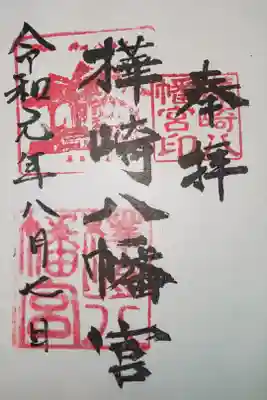 奉拝
樺崎八幡宮
令和元年八月七日
樺崎八幡宮印
樺崎八幡宮